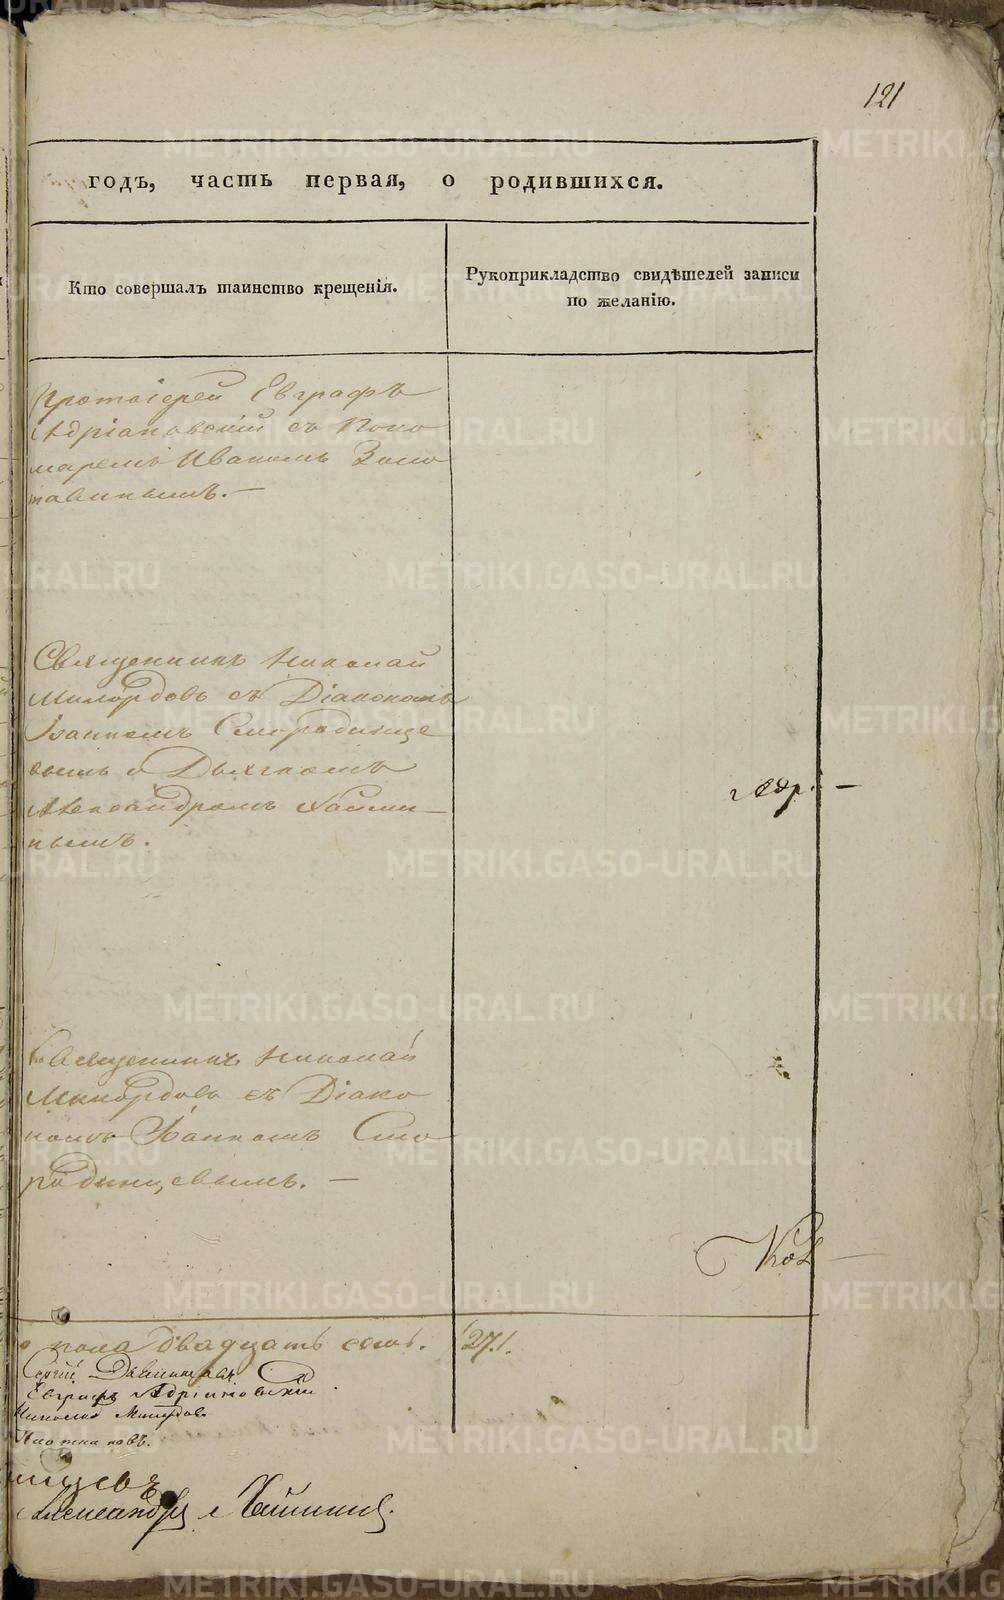 121
годъ, часть первая, о родившихся.
Кто совершалъ таинство крещенія.
Рукоприкладство свидѣтелей записи
по желанію.
Протоіерей Евграфъ
Адріановскій съ Поно
маремъ Иваномъ Золо
тавинымъ.—
Священникъ Николай
Милордовъ съ Діакономъ
Іоанномъ Смородинце
вымъ и Дьячкомъ
Александромъ
нымъ.
Адр. —
Священникъ Николай
Милордовъ съ Діако
номъ Іоанномъ Смо
родинцевымъ. —
пола двадцать семь. 27.
Сергій
Евграфъ Адріановскій.
Николай Милордовъ
Александръ
METRIKI.GASO-URAL.RU